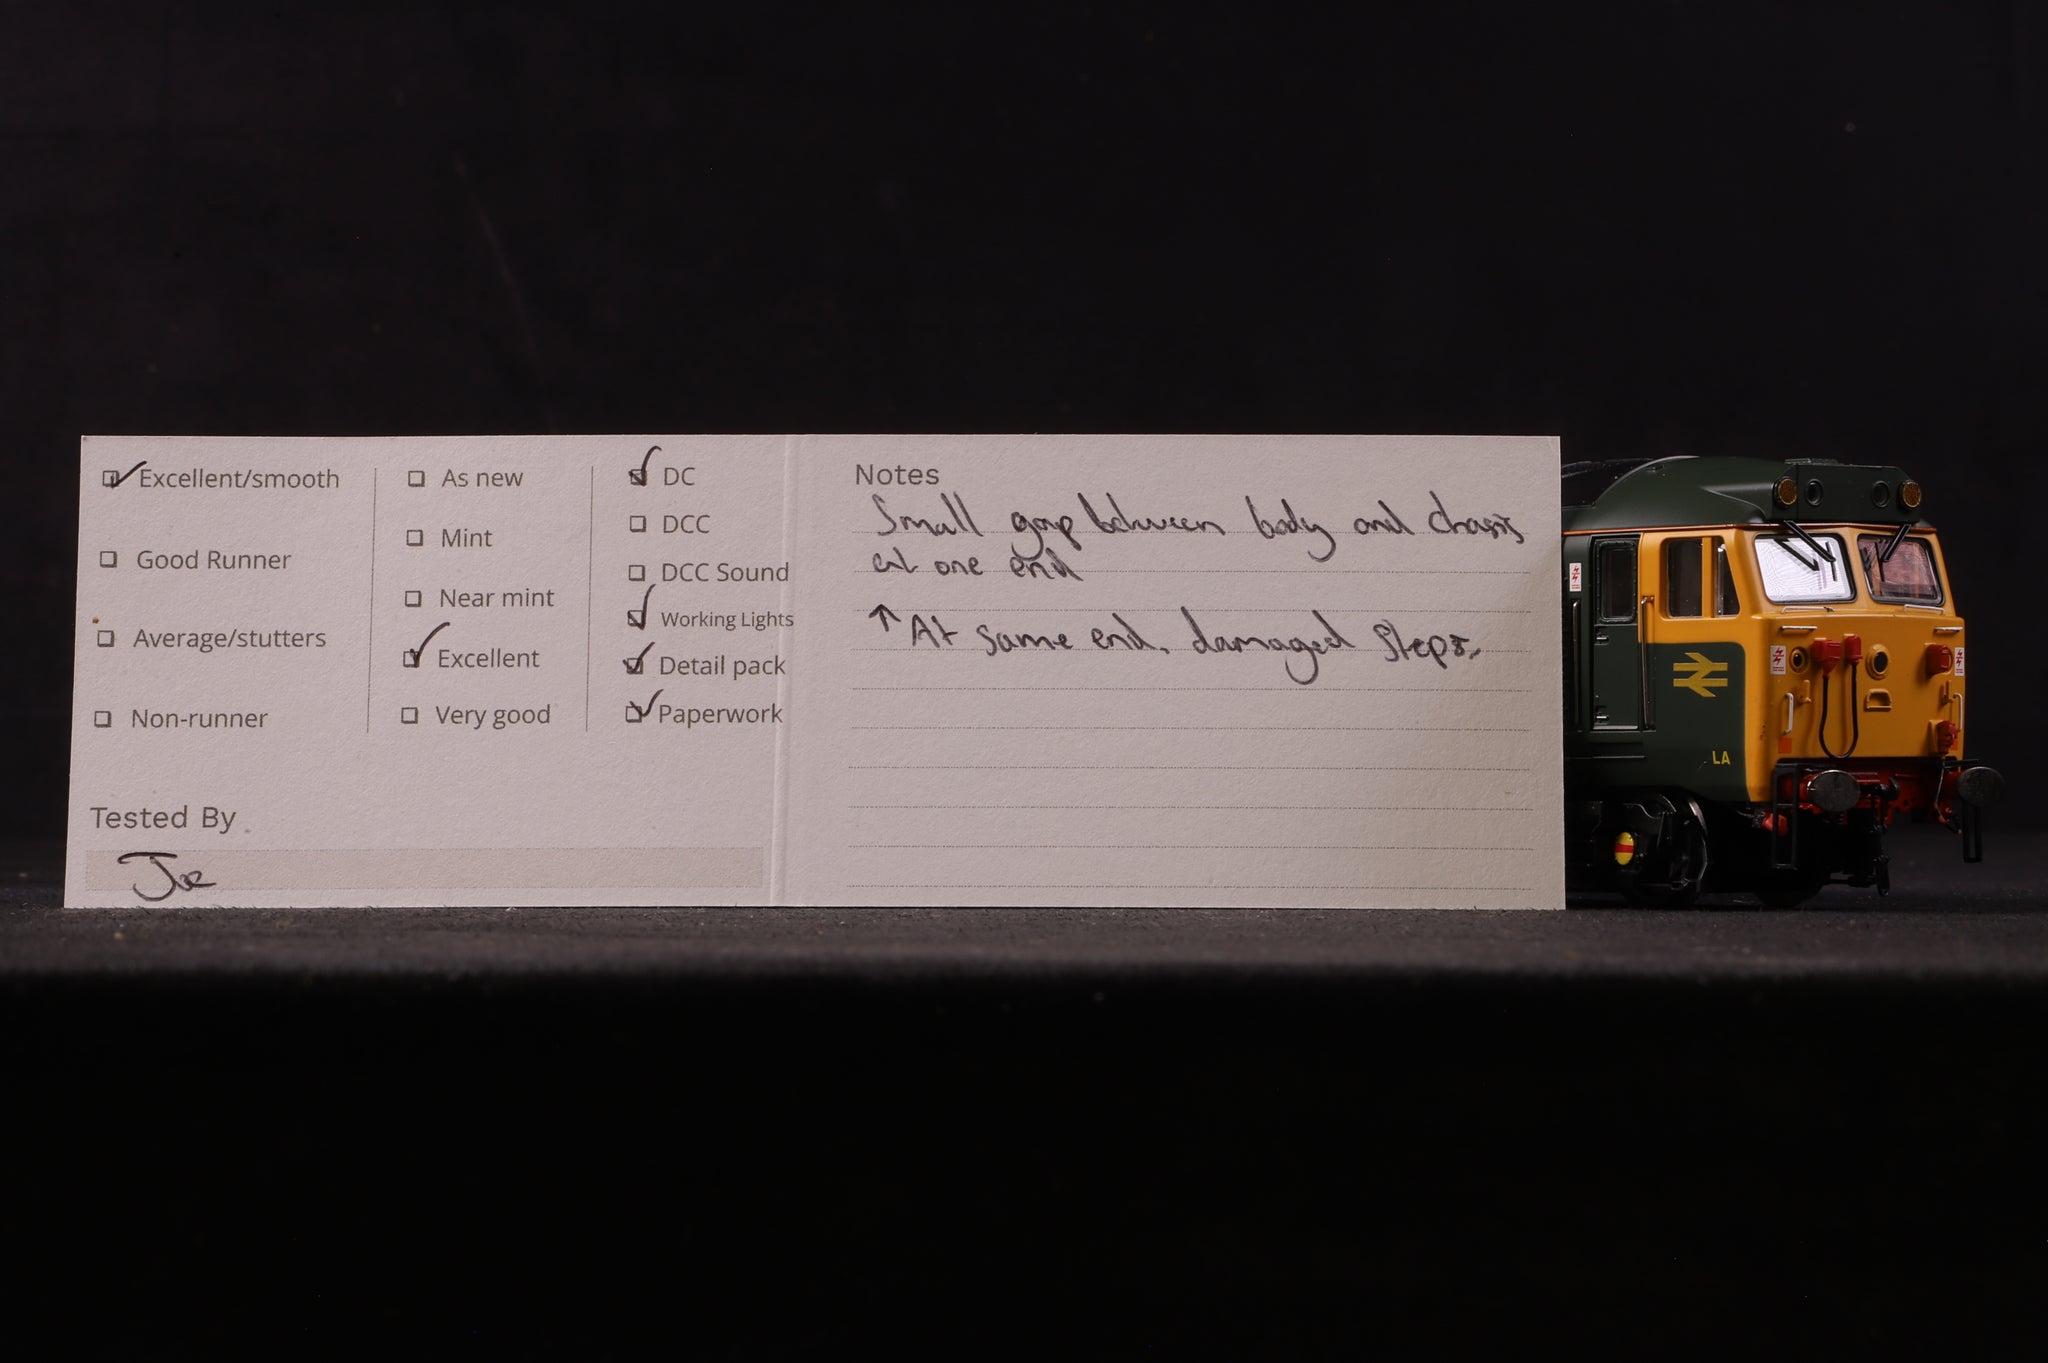 Excellent/smooth
Good Runner
Average/stutters
Non-runner
As new
Mint
Near mint
Excellent
Very good
DC
DCC
DCC Sound
Working Lights
Detail pack
Paperwork
Tested By
Joe
Notes
Small gap between body and chassis
at one end
↑ At same end, damaged steps.
LA